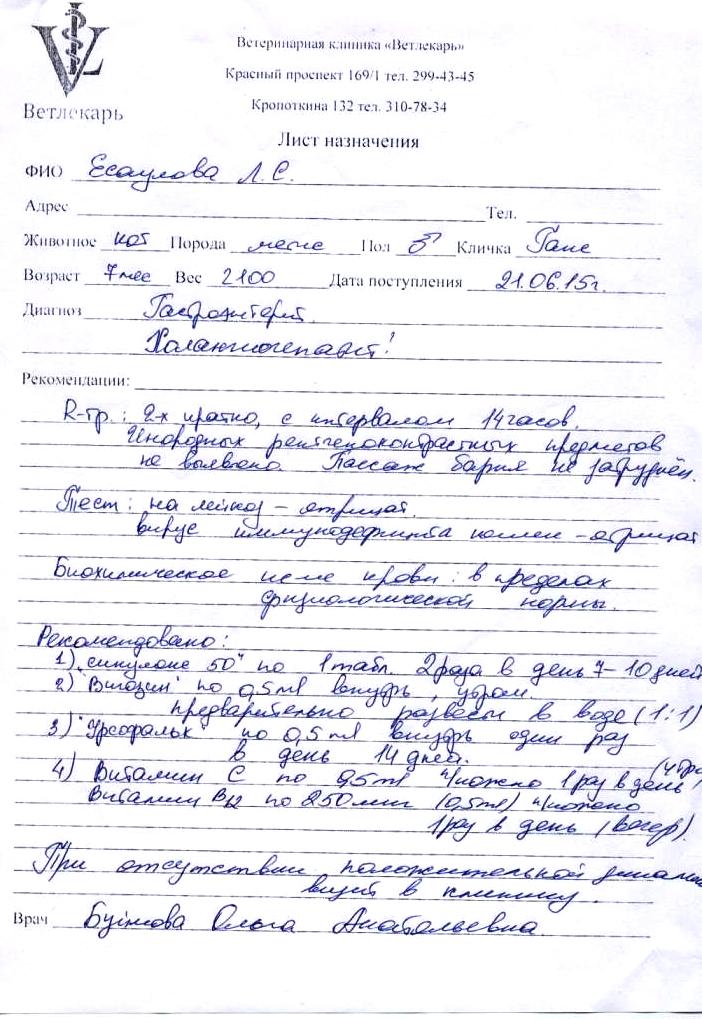 Ветеринарная клиника «Ветлекарь»
Красный проспект 169/1 тел. 299-43-45
Кропоткина 132 тел. 310-78-34
Ветлекарь
Лист назначения
ФИО Есаулова Л.С.
Адрес Тел.
Животное кот Порода метис Пол ♂ Кличка Ганс
Возраст 7 мес Вес 2100 Дата поступления 21.06.15г.
Диагноз Гастроэнтерит.
Холангиогепатит!
Рекомендации:
R-гр.: 2-х кратно, с интервалом 14 часов.
Инородных рентгеноконтрастных предметов
не выявлено. Пассаж бария не затруднён.
Тест: на лейкоз – отрицат.
вирус иммунодефицита кошек – отрицат
Биохимическое иссле крови: в пределах
физиологической нормы.
Рекомендовано:
1) "синулокс 50" по 1 табл. 2 раза в день 7-10 дней
2) по 0,5 ml внутрь, утром.
предварительно развести в воде (1:1)
3) "Урсофальк" по 0,5 ml внутрь один раз
в день 14 дней.
4) Витамин С по 0,5 ml п/кожно 1 раз в день
Витамин В12 по 250 мкг (0,5 ml) п/кожно
1 раз в день (вечер).
При отсутствии положительной
визит в клинику.
Врач Ольга Анатольевна